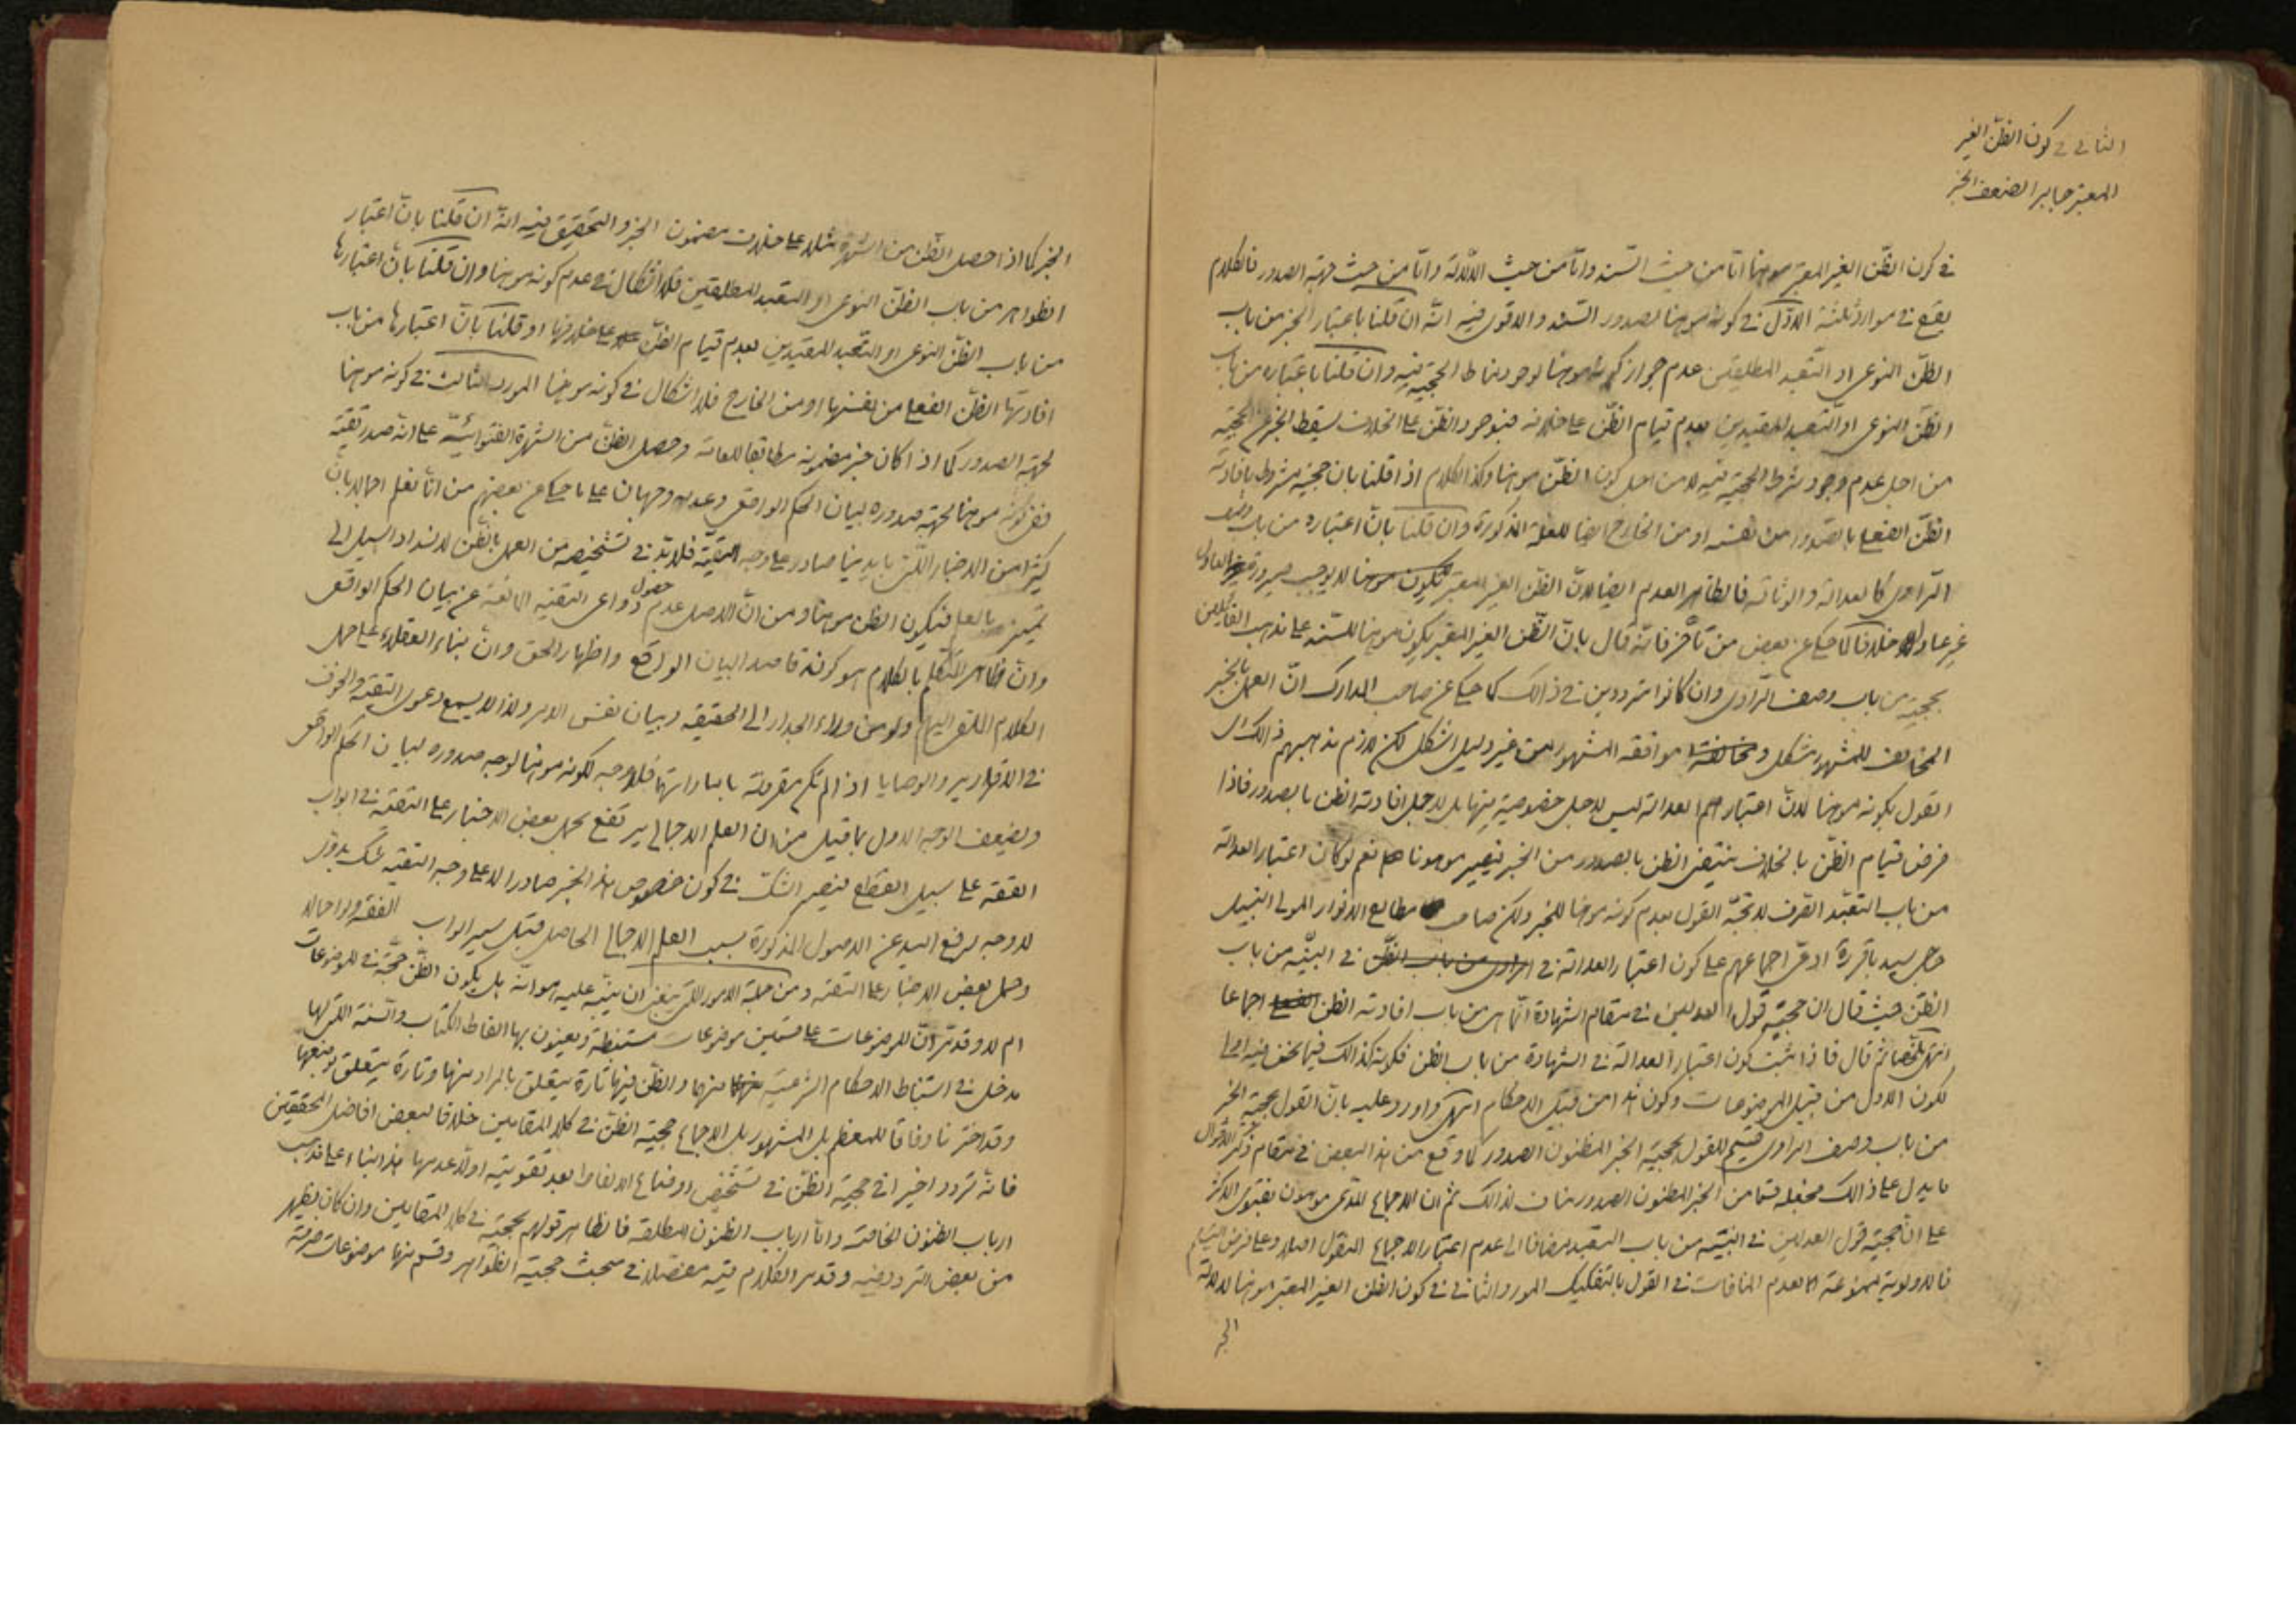 الثانى فى كون الظن الغير
المعتبر جابرا لضعف الخبر
فى كون الظن الغير المعتبر موهنا امّا من حيث السند وامّا من حيث الدلالة وامّا من حيث جهة الصدور فالكلام
يقع فى موارد ثلثة الاوّل فى كونه موهنا لصدور السند والاقوى فيه انّه ان قلنا باعتبار الخبر من باب
الظنّ النوعى او التعبد المطلقين عدم جواز كونه موهنا لوجود مناط الحجية فيه وان قلنا باعتباره من باب
الظن النوعى او التعبد المقيدين بعدم قيام الظنّ على خلافه فبوجود الظنّ على الخلاف يسقط الخبر عن الحجية
من اجل عدم وجود شرط الحجية فيه لا من اجل كون الظنّ موهنا وكذا الكلام اذا قلنا بان حجيته مشروط بافادته
الظنّ الفعلى بالصدور من نفسه او من الخارج ايضا للعلة المذكورة وان قلنا بانّ اعتباره من باب وصف
الراوى كالعدالة والوثاقة فالظاهر العدم ايضا لانّ الظن الغير المعتبر لا يوجب صيرورة العادل
غير عادل خلافا لما حكى عن بعض من تأخر فانّه قال بانّ الظن الغير المعتبر يكون موهنا للسند على مذهب القائلين
بحجيته من باب وصف الراوى وان كانوا مترددين فى ذالك كما حكى عن صاحب المدارك انّ العمل بالخبر
المخالف للمشهور مشكل و موافقة المشهور من غير دليل اشكل لكن لازم مذهبهم ذالك اى
القول بكونه موهنا لانّ اعتبار العدالة ليس لاجل خصوصية فيها بل لاجل افادته الظن بالصدور فاذا
فرض قيام الظنّ بالخلاف ينتفى الظن بالصدور من الخبر فيصير موهونا نعم لو كان اعتبار العدالة
من باب التعبّد الصرف لاتجه القول بعدم كونه موهنا للخبر ولكن صاحب مطالع الانوار المولى النبيل
حاجى سيد باقر ره ادعى اجماعهم على كون اعتبار العدالة فى البيّنه من باب
الظنّ حيث قال ان حجيّة قول العدلين فى مقام الشهادة انّما هى من باب افادته الظن اجماعا
انتهى ملخصا ثم قال فاذا ثبت كون اعتبار العدالة فى الشهادة من باب الظن فكونه كذالك فيما نحن فيه اولى
لكون الاول من قبيل الموضوعات وكون هذا من قبيل الاحكام انتهى واورد عليه بانّ القول بحجية الخبر
من باب وصف الراوى قسيم للقول بحجية الخبر المظنون الصدور كما وقع من هذا البعض فى مقام ذكر الاقوال
ما يدل على ذالك فجعله قسما من الخبر المظنون الصدور مناف لذالك ثم ان الاجماع المدّعى موهون بفتوى الاكثر
على انّ حجية قول العدلين فى البيّنه من باب التعبد مضافا الى عدم اعتبار الاجماع المنقول اصلا وعلى فرض التسليم
فالاولوية ممنوعة لعدم المنافات فى القول بالتفكيك المورد الثانى فى كون الظن الغير المعتبر موهنا لدلالة
الخبر
الخبر كما اذا حصل الظن من الشهرة مثلا على خلاف مضمون الخبر والتحقيق فيه انّه ان قلنا بانّ اعتبار
الظواهر من باب الظنّ النوعى او التعبد المطلقين فلا اشكال فى عدم كونه موهنا وان قلنا بانّ اعتبارها
من باب الظنّ النوعى او التعبد المقيدين بعدم قيام الظنّ على خلافها او قلنا بانّ اعتبارها من باب
افادتها الظنّ الفعلى من نفسها او من الخارج فلا اشكال فى كونه موهنا المورد الثالث فى كونه موهنا
لجهة الصدور كما اذا كان خبر مضمونه مطابقا للعامة وحصل الظنّ من الشهرة الفتوائيّة على انه صدر تقيّة
ففى كونه موهنا لجهة صدوره لبيان الحكم الواقعى وعدمه وجهان على ما حكى عن بعضهم من انّا نعلم اجمالا بانّ
كثيرا من الاخبار الّتى بايدينا صادر على وجه التقيّة فلا بدّ فى تشخيصه من العمل بالظّن لانسداد السبيل الى
تميزه بالعلم فيكون الظن موهنا ومن انّ الاصل عدم حصول دواعى التقيّه المانعة عن بيان الحكم الواقعى
وانّ ظاهر المتكلّم بالكلام هو كونه قاصدا لبيان الواقع واظهار الحق وانّ بناء العقلاء على حمل
الكلام الملقى اليهم ولو من وراء الجدار الى الحقيقه وبيان نفس الامر ولذا لا يسمع دعوى التقيّة والخوف
فى الاقارير والوصايا اذا لم تكن مقرونة باماراتهما فلا وجه لكونه موهنا لوجه صدوره لبيان الحكم الواقعى
ويضعف الوجه الاول بما قيل من ان العلم الاجمالى يرتفع بحمل بعض الاخبار على التقيّة فى ابواب
الفقه على سبيل القطع فيصير الشكّ فى كون خصوص هذا الخبر صادرا على وجه التقيّه شك بدوى
لا وجه لرفع اليد عن الاصول المذكورة بسبب العلم الاجمالى الحاصل قبل سير ابواب الفقه ولو اجمالا
وحمل بعض الاخبار على التقيّه ومن جملة الامور الّتى ينبغى ان ينبّه عليه هو انّه هل يكون الظّن حجّة فى الموضوعات
ام لا وقد مرّ انّ للموضوعات على قسمين موضوعات مستنبطة ويعنون بها الفاظ الكتاب والسنة اللتى لها
مدخل فى استنباط الاحكام الشرعيّة منهما والظّن فيها تارة يتعلق بالمراد منها وتارة يتعلق بوضعها
وقد اخترنا وفاقا للمعظم بل المشهور بل الاجماع حجية الظنّ فى كلا المقامين خلافا لبعض افاضل المحققين
فانّه تردد اخيرا فى حجية الظنّ فى تشخيص اوضاع الالفاظ بعد تقويته اوّلا عدمها هذا بناء على مذهب
ارباب الظنون الخاصة وامّا ارباب الظنون المطلقه فالظاهر قولهم بحجية فى كلا المقامين وان كان يظهر
من بعض التردد فيه وقد مر الكلام فيه مفصّلا فى مبحث حجية الظواهر وقسم منها موضوعات صرفة